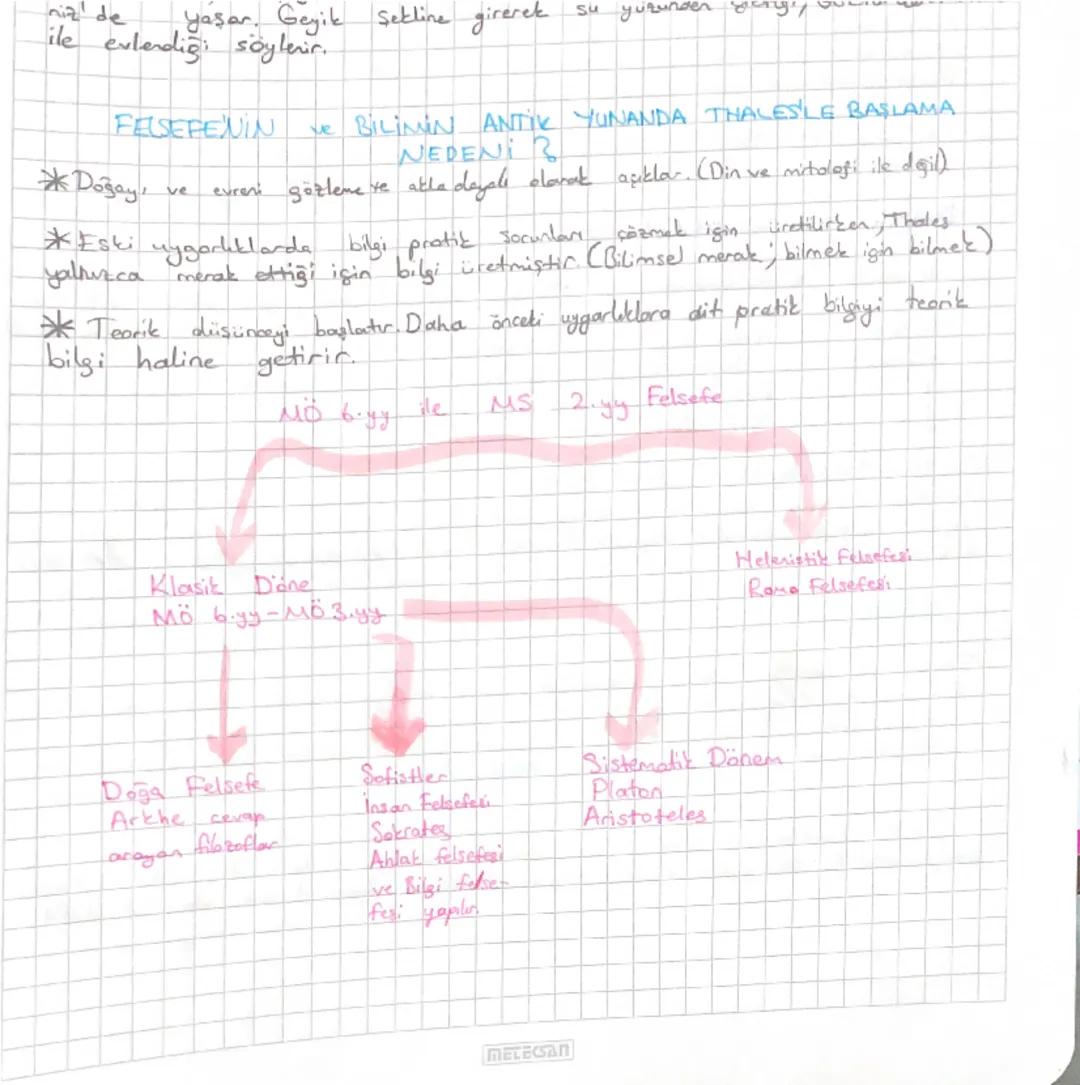 niz'de yaşar. Geyik şekline girerek su yüzünden
ile evlendiği söylenir.
FELSEFE'NİN ve BİLİMİN ANTİK YUNANDA THALES'LE BAŞLAMA
NEDENİ ?
* Doğayı ve evreni gözleme ve akla dayalı olarak açıklar. (Din ve mitoloji ile değil)
* Eski uygarlıklarda bilgi pratik sorunları çözmek için üretilirken, Thales
yalnızca merak ettiği için bilgi üretmiştir. (Bilimsel merak; bilmek için bilmek)
* Teorik düşünceyi başlatır. Daha önceki uygarlıklara ait pratik bilgiyi teorik
bilgi haline getirir.
MÖ 6.yy ile MS 2.yy Felsefe
Helenistik Felsefesi
Roma Felsefesi
Klasik Döne
MÖ 6.yy-MÖ 3.yy
Doğa Felsefe
Arkhe cevap
arayan filozoflar
Sofistler
İnsan Felsefesi
Sokrates
Ahlak felsefesi
ve Bilgi felse-
fesi yapılır.
Sistematik Dönem
Platon
Aristoteles
MELEKSAN